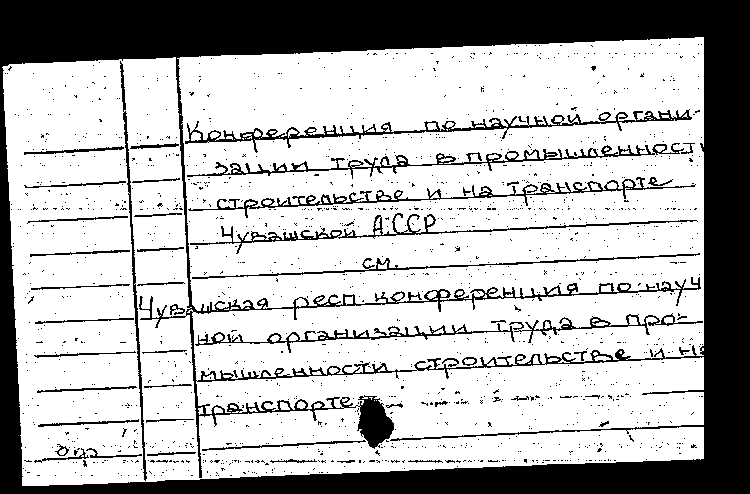 Конференция по научной органи-
зации труда в промышленности
строительстве и на транспорте
Чувашской АССР
см.
Чувашская респ. конференция по науч
ной организации труда в про-
мышленности, строительстве и на
транспорте